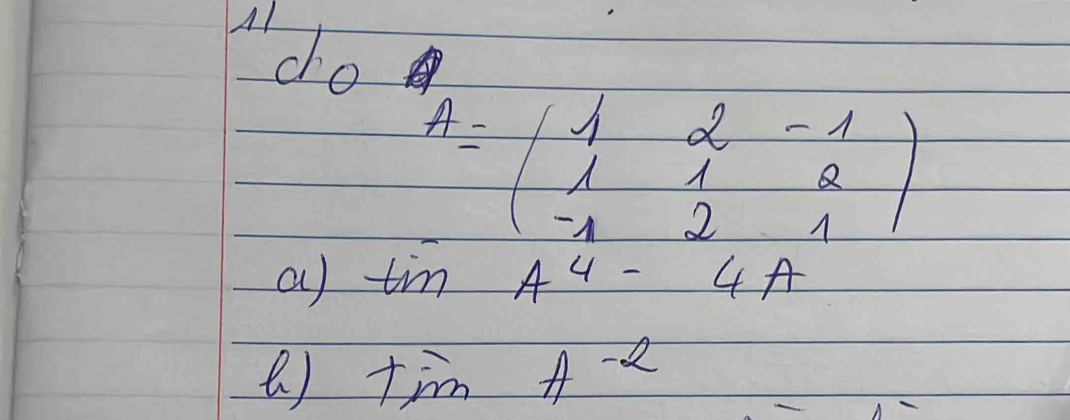 1)
cho
A = ( 1 2 -1
1 1 2
-1 2 1 )
a) tìm A^4 - 4A
b) tìm A^-2